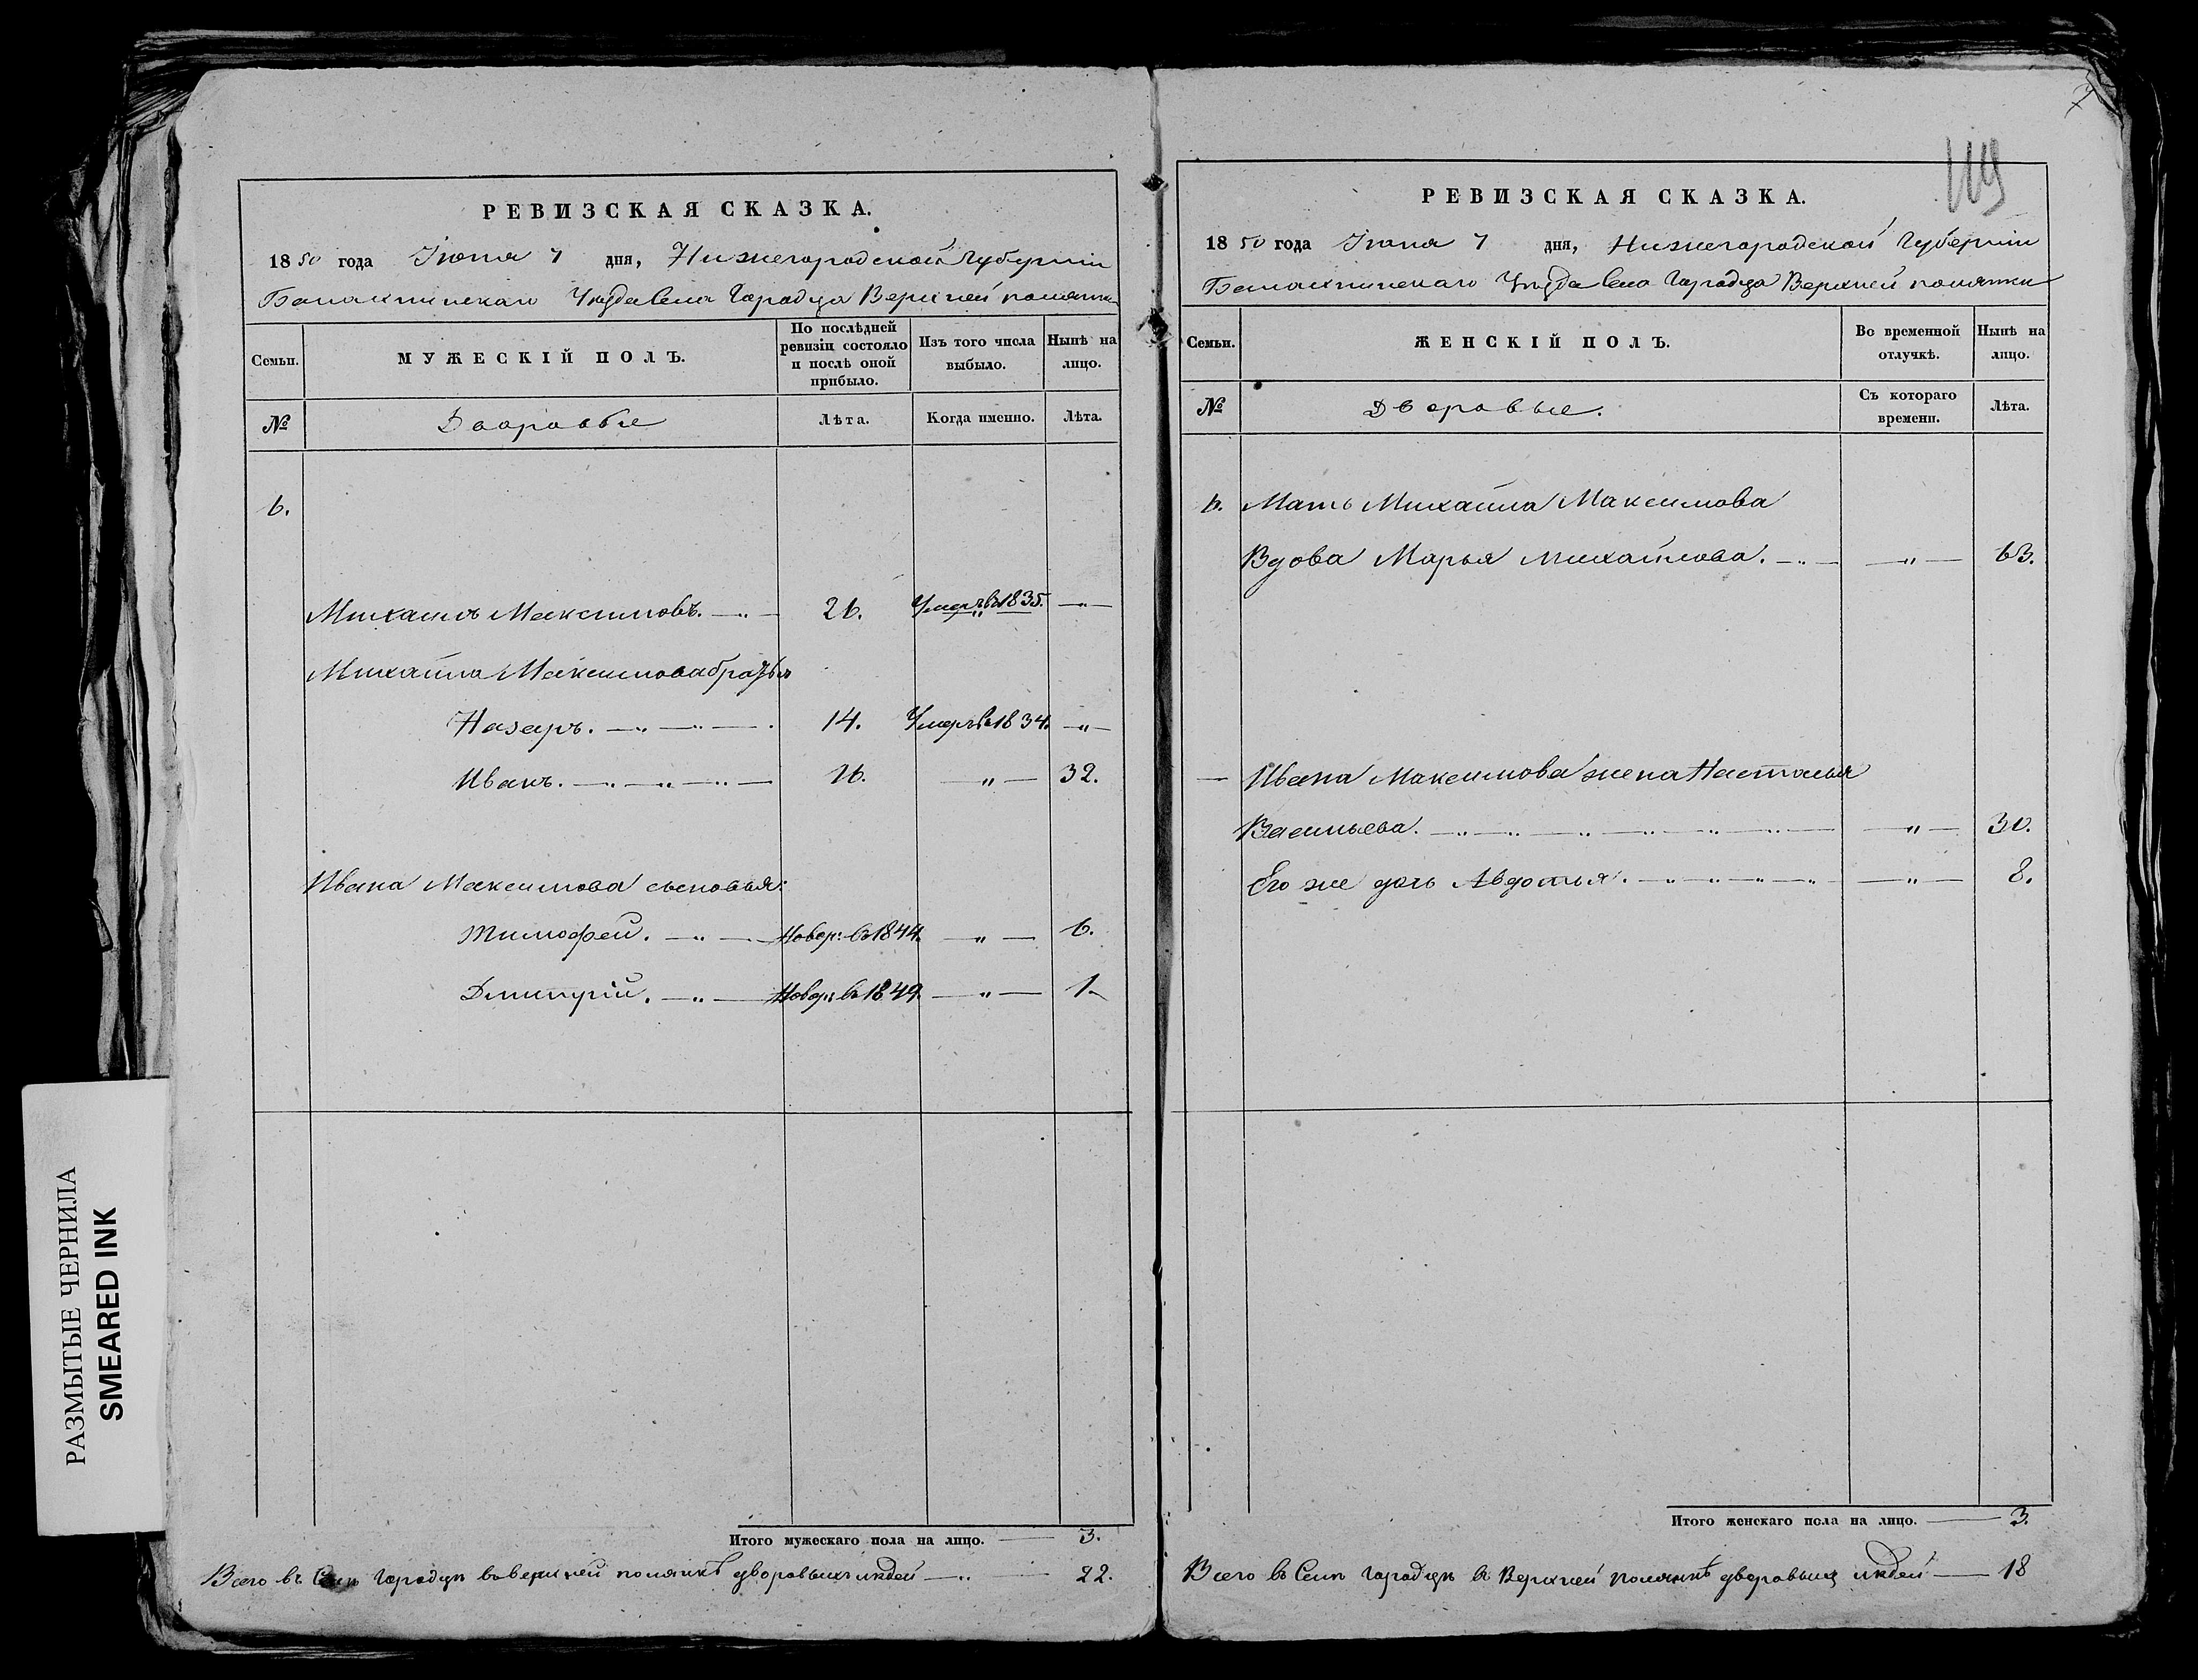 РЕВИЗСКАЯ СКАЗКА.
1850 года Іюня 7 дня, Нижегородской Губерніи
Балахнинскаго Уѣзда Села Городца Верхней полянки
Семьи.
МУЖЕСКІЙ ПОЛЪ.
По послѣдней ревизіи состояло и послѣ оной прибыло.
Изъ того числа выбыло.
Нынѣ на лицо.
№
Дворовые
Лѣта.
Когда именно.
Лѣта.
6.
Михаилъ Максимовъ. 26. Умеръ въ 1835.
Михайла Максимова братья
Назаръ. 14. Умеръ въ 1834. "
Иванъ. 16. " 32.
Ивана Максимова сыновья:
Тимофей. Новор: въ 1844. " 6.
Дмитрій. Новор: въ 1849. " 1.
Итого мужескаго пола на лицо. 3.
Всего въ Селѣ Городцѣ въ верхней полянкѣ дворовыхъ людей 22.
119
РЕВИЗСКАЯ СКАЗКА.
1850 года Іюня 7 дня, Нижегородской Губерніи
Балахнинскаго Уѣзда Села Городца Верхней полянки
Семьи.
ЖЕНСКІЙ ПОЛЪ.
Во временной отлучкѣ.
Нынѣ на лицо.
№
Дворовые.
Съ котораго времени.
Лѣта.
6. Мать Михайла Максимова
Вдова Марья Михайлова. " 63.
Ивана Максимова жена Настасья
Васильева. " 30.
Его же дочь Авдотья. " 8.
Итого женскаго пола на лицо. 3.
Всего въ Селѣ Городцѣ въ Верхней полянкѣ дворовыхъ людей 18
РАЗМЫТЫЕ ЧЕРНИЛА
SMEARED INK